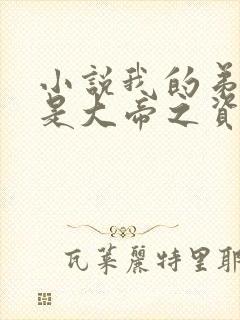 小說我的弟
是大帝之資
瓦萊麗特里耶